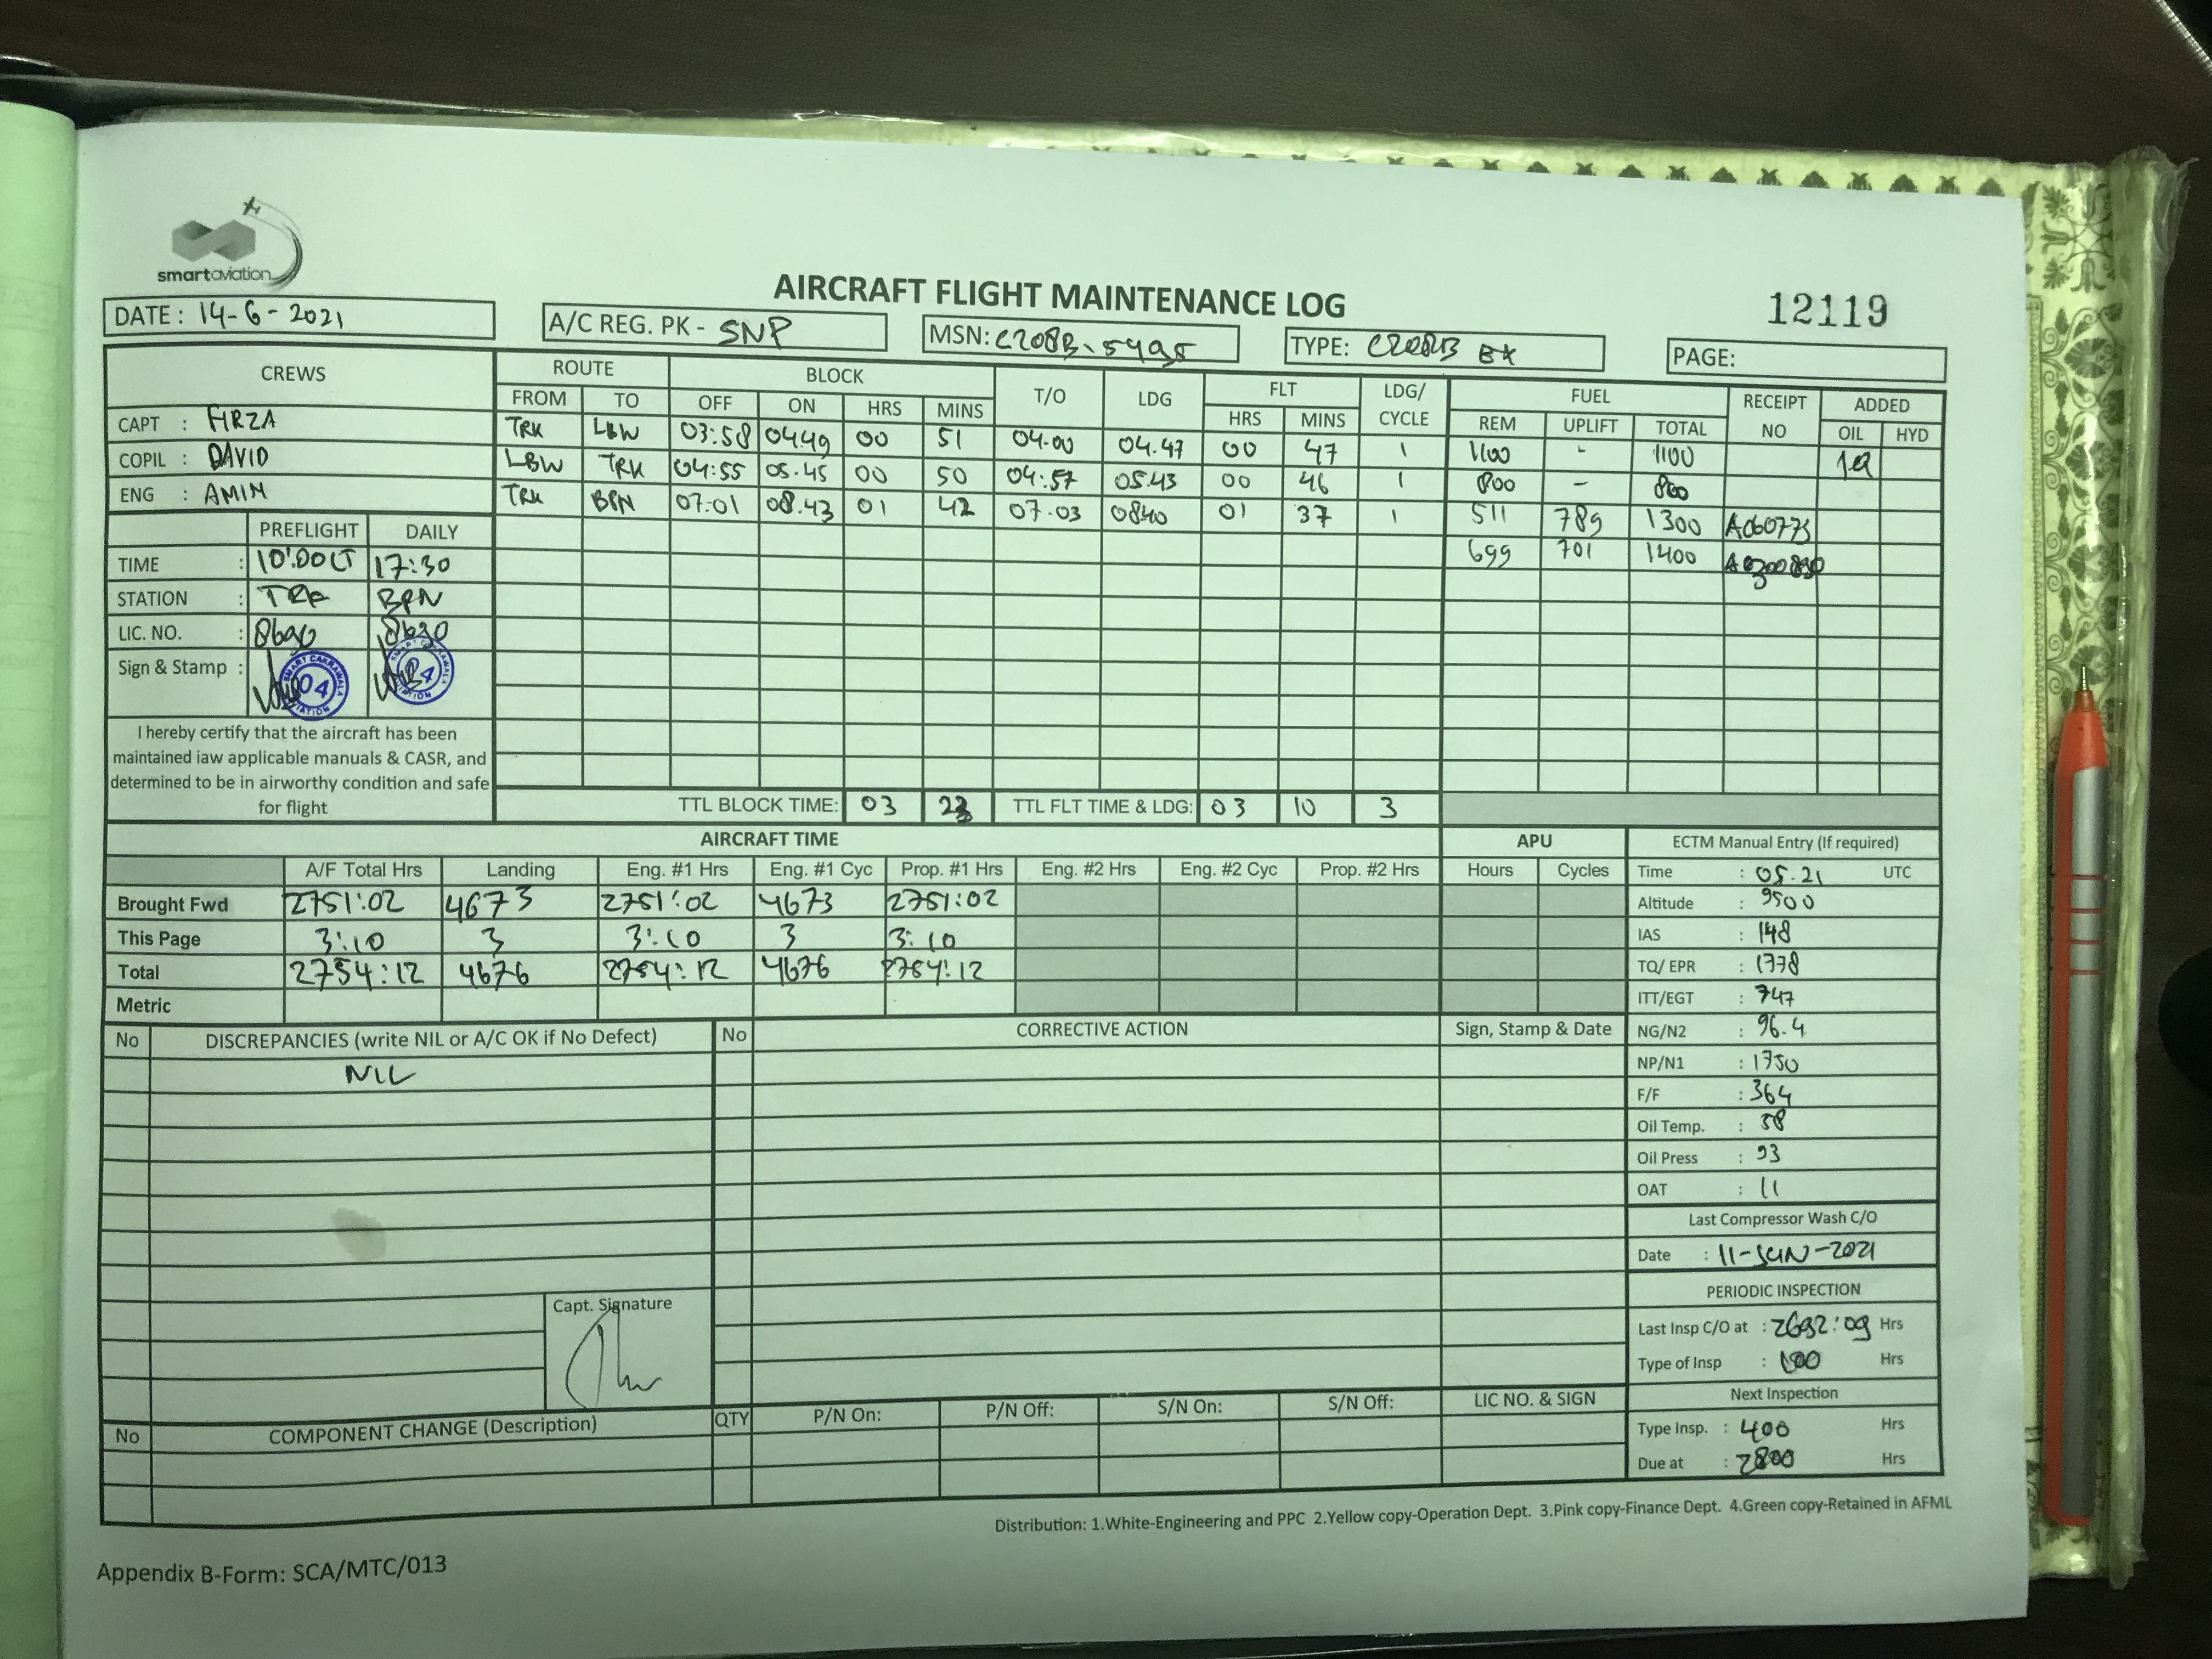 smartaviation
AIRCRAFT FLIGHT MAINTENANCE LOG
12119
DATE : 14-6-2021
A/C REG. PK - SNP
MSN: C208B-5495
TYPE: C208B EX
PAGE:
CREWS
CAPT : FIRZA
COPIL : DAVID
ENG : AMIN
PREFLIGHT DAILY
TIME : 10:00 LT 17:30
STATION : BPN
LIC. NO. : 8690 8690
Sign & Stamp :
SMART CAKRAWALA AVIATION 04
I hereby certify that the aircraft has been
maintained iaw applicable manuals & CASR, and
determined to be in airworthy condition and safe
for flight
ROUTE BLOCK T/O LDG FLT LDG/CYCLE FUEL RECEIPT NO ADDED
FROM TO OFF ON HRS MINS HRS MINS REM UPLIFT TOTAL OIL HYD
TRK LBW 03:58 04.49 00 51 04.00 04.47 00 47 1 1100 - 1100
LBW TRK 04:55 05.45 00 50 04:57 05.43 00 46 1 800 - 800
TRK BPN 07:01 08.43 01 42 07.03 0840 01 37 1 511 789 1300
699 701 1400
TTL BLOCK TIME: 03 23 TTL FLT TIME & LDG: 03 10 3
AIRCRAFT TIME APU
A/F Total Hrs Landing Eng. #1 Hrs Eng. #1 Cyc Prop. #1 Hrs Eng. #2 Hrs Eng. #2 Cyc Prop. #2 Hrs Hours Cycles
Brought Fwd 2751:02 4673 2751:02 4673 2751:02
This Page 3:10 3 3:10 3 3:10
Total 2754:12 4676 2754:12 4676 2754:12
Metric
ECTM Manual Entry (If required)
Time : 05.21 UTC
Altitude : 9500
IAS : 148
TQ/ EPR : 1778
ITT/EGT : 747
NG/N2 : 96.4
NP/N1 : 1750
F/F : 364
Oil Temp. : 58
Oil Press : 93
OAT : 11
Last Compressor Wash C/O
Date : 11-JUN-2021
PERIODIC INSPECTION
Last Insp C/O at : 2692:09 Hrs
Type of Insp : 100 Hrs
Next Inspection
Type Insp. : 400 Hrs
Due at : 2800 Hrs
No DISCREPANCIES (write NIL or A/C OK if No Defect) No CORRECTIVE ACTION Sign, Stamp & Date
NIL
Capt. Signature
No COMPONENT CHANGE (Description) QTY P/N On: P/N Off: S/N On: S/N Off: LIC NO. & SIGN
Distribution: 1.White-Engineering and PPC 2.Yellow copy-Operation Dept. 3.Pink copy-Finance Dept. 4.Green copy-Retained in AFML
Appendix B-Form: SCA/MTC/013